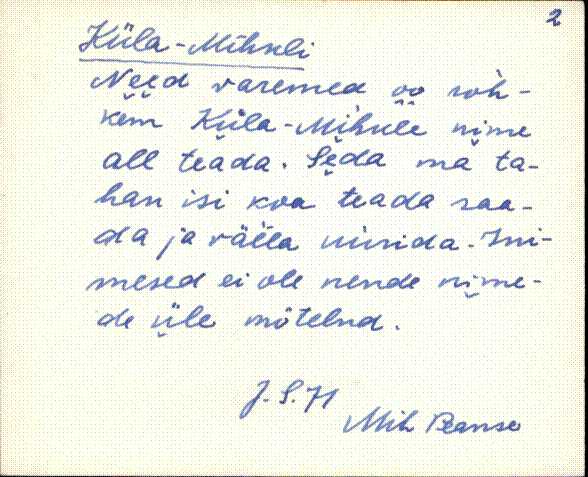 2
Küla-Mihkli
Need varemed oo roh-
kem Küla-Mihkle nime
all teada. Seda ma ta-
han isi kva teada saa-
da ja välla uurida. Ini-
mesed ei ole nende nime-
de üle mõtelnd.
J. S. H
Mih